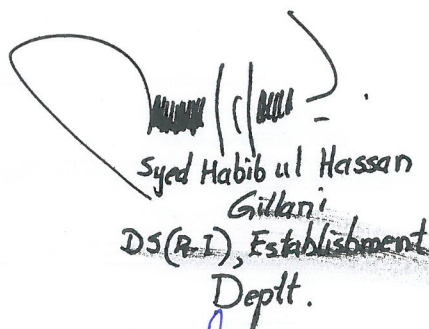 Syed Habib ul Hassan
Gillani
DS(R-I), Establishment
Deptt.